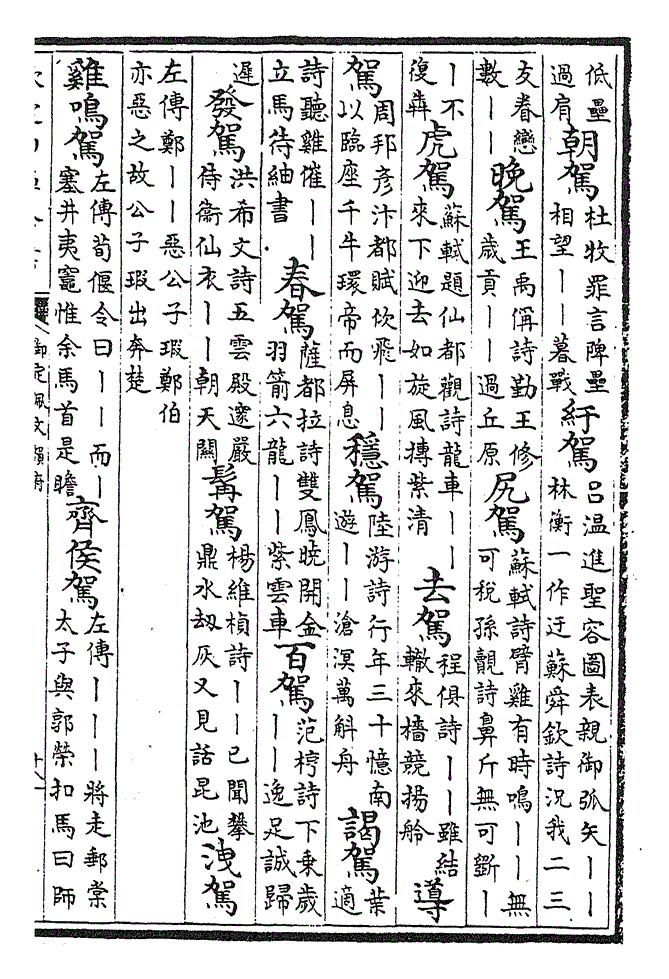 低壘過肩朝駕杜牧罪言陴壘相望丨丨暮戰紆駕呂溫進聖容圖表親御弧矢丨丨林衡一作迂蘇舜欽詩況我二三
友眷戀數丨丨晚駕王禹偁詩勤王修歲貢丨丨過丘原尻駕蘇軾詩臂雞有時鳴丨丨無可稅孫覿詩鼻斤無可斲丨
丨不復犇虎駕蘇軾題仙都觀詩龍車丨丨來下迎去如旋風摶紫清去駕程俱詩丨丨雖結轍來檣競揚舲導
駕周邦彥汴都賦佽飛丨丨以臨座千牛環帝而屏息穩駕陸游詩行年三十憶南遊丨丨滄溟萬斛舟謁駕葉適
詩聽雞催丨丨立馬待紬書春駕薩都拉詩雙鳳曉開金羽箭六龍丨丨紫雲車百駕范梈詩下乘歲丨丨逸足誠歸
遲發駕洪希文詩五雲殿邃嚴待衞仙衣丨丨朝天闕髯駕楊維楨詩丨丨已聞攀鼎水刼灰又見話昆池洩駕
左傳鄭丨丨惡公子瑕鄭伯亦惡之故公子瑕出奔楚
雞鳴駕左傳荀偃令曰丨丨而丨塞井夷竈惟余馬首是瞻齊侯駕左傳丨丨丨將走郵棠太子與郭榮扣馬曰師
御定佩文韻府